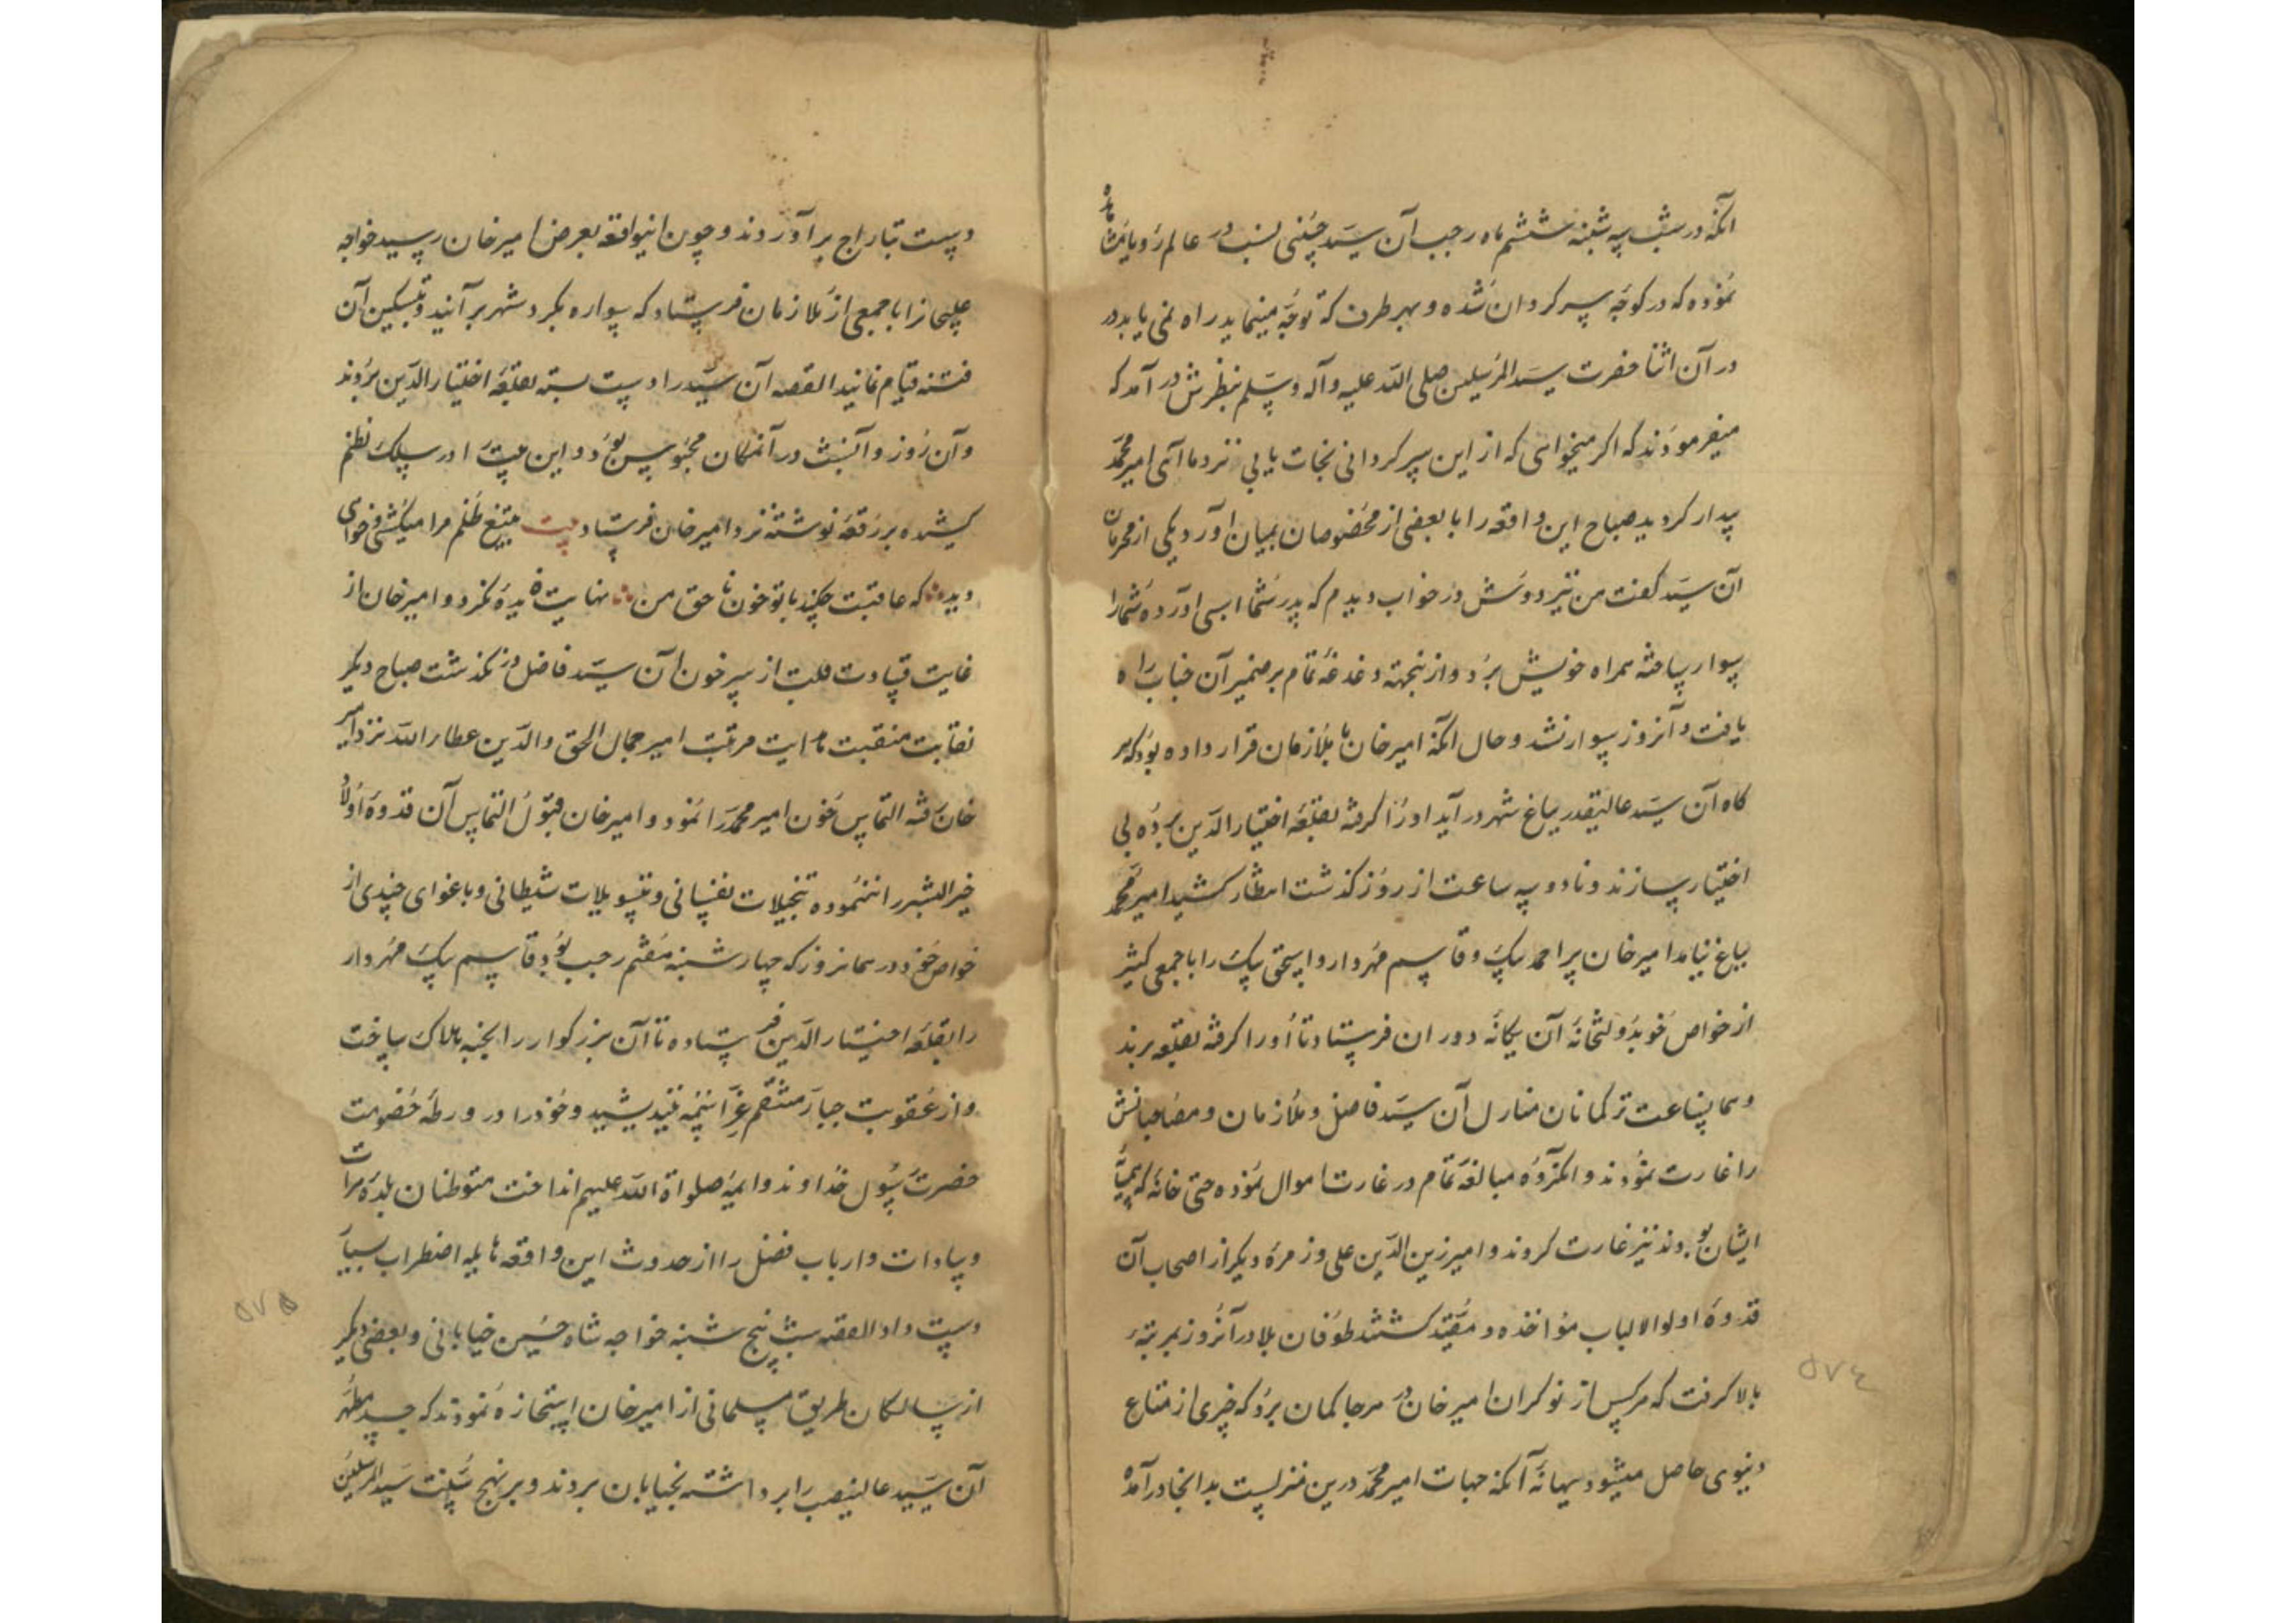 آنکه در شب سه شنبه ششم ماه رجب آن سید حسینی نسب در عالم رویا مشاهده
نموده که در کوچه سرگردان شده و بهر طرف که توجه مینماید راه نمی یابد و در
در آن اثنا حضرت سید المرسلین صلی الله علیه و آله و سلم بنظرش در آمد که
میفرمودند که اگر میخواهی که از این سرگردانی نجات یابی نزد ما آی امیر محمد
بیدار گردید صباح این واقعه را با بعضی از مخصوصان بمیان آورد یکی از محرمان
آن سید گفت من نیز دوش در خواب دیدم که پدر شما اسبی آورده شما را
سوار ساخته همراه خویش برد و از ینجهة دغدغه تمام بر ضمیر آن جناب راه
یافت و آنروز سوار نشد و حال آنکه امیر خان با ملازمان قرار داده بود که هر
کاه آن سید عالیقدر بباغ شهر در آید او را گرفته بقلعه اختیار الدین برده بی
اختیار سازند و تا دو سه ساعت از روز گذشت انتظار کشید امیر محمد
بباغ نیامد امیر خان پیر احمد بیک و قاسم مهردار و اسحق بیک را با جمعی کثیر
از خواص خود بدولتخانه آن یگانه دوران فرستاد تا او را گرفته بقلعه برند
و همان ساعت ترکمانان منازل آن سید فاضل و ملازمان و مصاحبانش
را غارت نمودند و آنگروه مبالغه تمام در غارت اموال نموده حتی خانه که همسایه
ایشان بودند نیز غارت کردند و امیر زین الدین علی و زمره دیگر از اصحاب آن
قدوه اولوا الالباب مؤاخذه و مقید گشتند طوفان بلا در آنروز بمرتبه
بالا گرفت که هر کس از نوکران امیر خان در هر جا گمان برد که چیزی از متاع
دنیوی حاصل میشود ببهانه آنکه جهات امیر محمد درین منزلست بدانجا در آمده
دست بتاراج بر آوردند و چون اینواقعه بعرض امیر خان رسید خواجه
چلبی را با جمعی از ملازمان فرستاد که سواره بگرد شهر بر آیند و بتسکین آن
فتنه قیام نمایند القصه آن سید را دست بسته بقلعه اختیار الدین بردند
و آن روز و آنشب در آنمکان محبوس بود و این بیت را در سلک نظم
کشیده بر رقعه نوشته نزد امیر خان فرستاد بیت بتیغ ظلم مرا میکشی و خواهی
دید که عاقبت چکند با تو خون نا حق من نهایت فایده نکرد و امیر خان از
غایت قساوت قلب از سر خون آن سید فاضل در نگذشت صباح دیگر
نقابت منقبت هدایت مرتبت امیر جمال الحق و الدین عطاء الله نزد امیر
خان رفته التماس خون امیر محمد را نمود و امیر خان قبول التماس آن قدوه اولاد
خیر البشر را ننموده بتخیلات نفسانی و تسویلات شیطانی و باغوای چندی از
خواص خود در همانروز که چهار شنبه هفتم رجب بود قاسم بیک مهردار
را بقلعه اختیار الدین فرستاده تا آن بزرگوار را بخبه هلاک ساخت
و از عقوبت جبار منتقم عز اسمه نیندیشید و خود را در ورطه خصومت
حضرت رسول خدا و ائمه صلواة الله علیهم انداخت متوطنان بلده هرات
و سادات و ارباب فضل را از حدوث این واقعه هایله اضطراب بسیار
دست داد القصه شب پنج شنبه خواجه شاه حسین خیابانی و بعضی دیگر
از سالکان طریق مسلمانی از امیر خان استجازه نمودند که جسد مطهر
آن سید عالیمنصب را برداشته بخیابان بردند و بر نهج سنت سید المرسلین
۵۷۵
۵۷۴